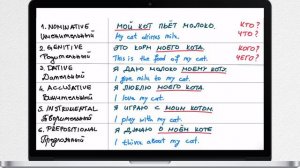 1. NOMINATIVE
Именительный
МОЙ КОТ ПЬЁТ МОЛОКО.
My cat drinks milk.
КТО?
ЧТО?
2. GENITIVE
Родительный
ЭТО КОРМ МОЕГО КОТА.
This is the food of my cat.
КОГО?
ЧЕГО?
3. DATIVE
Дательный
Я ДАЮ МОЛОКО МОЕМУ КОТУ
I give milk to my cat.
4. ACCUSATIVE
Винительный
Я ЛЮБЛЮ МОЕГО КОТА.
I love my cat.
5. INSTRUMENTAL
Творительный
Я ИГРАЮ С МОИМ КОТОМ.
I play with my cat.
6. PREPOSITIONAL
Предложный
Я ДУМАЮ О МОЁМ КОТЕ
I think about my cat.